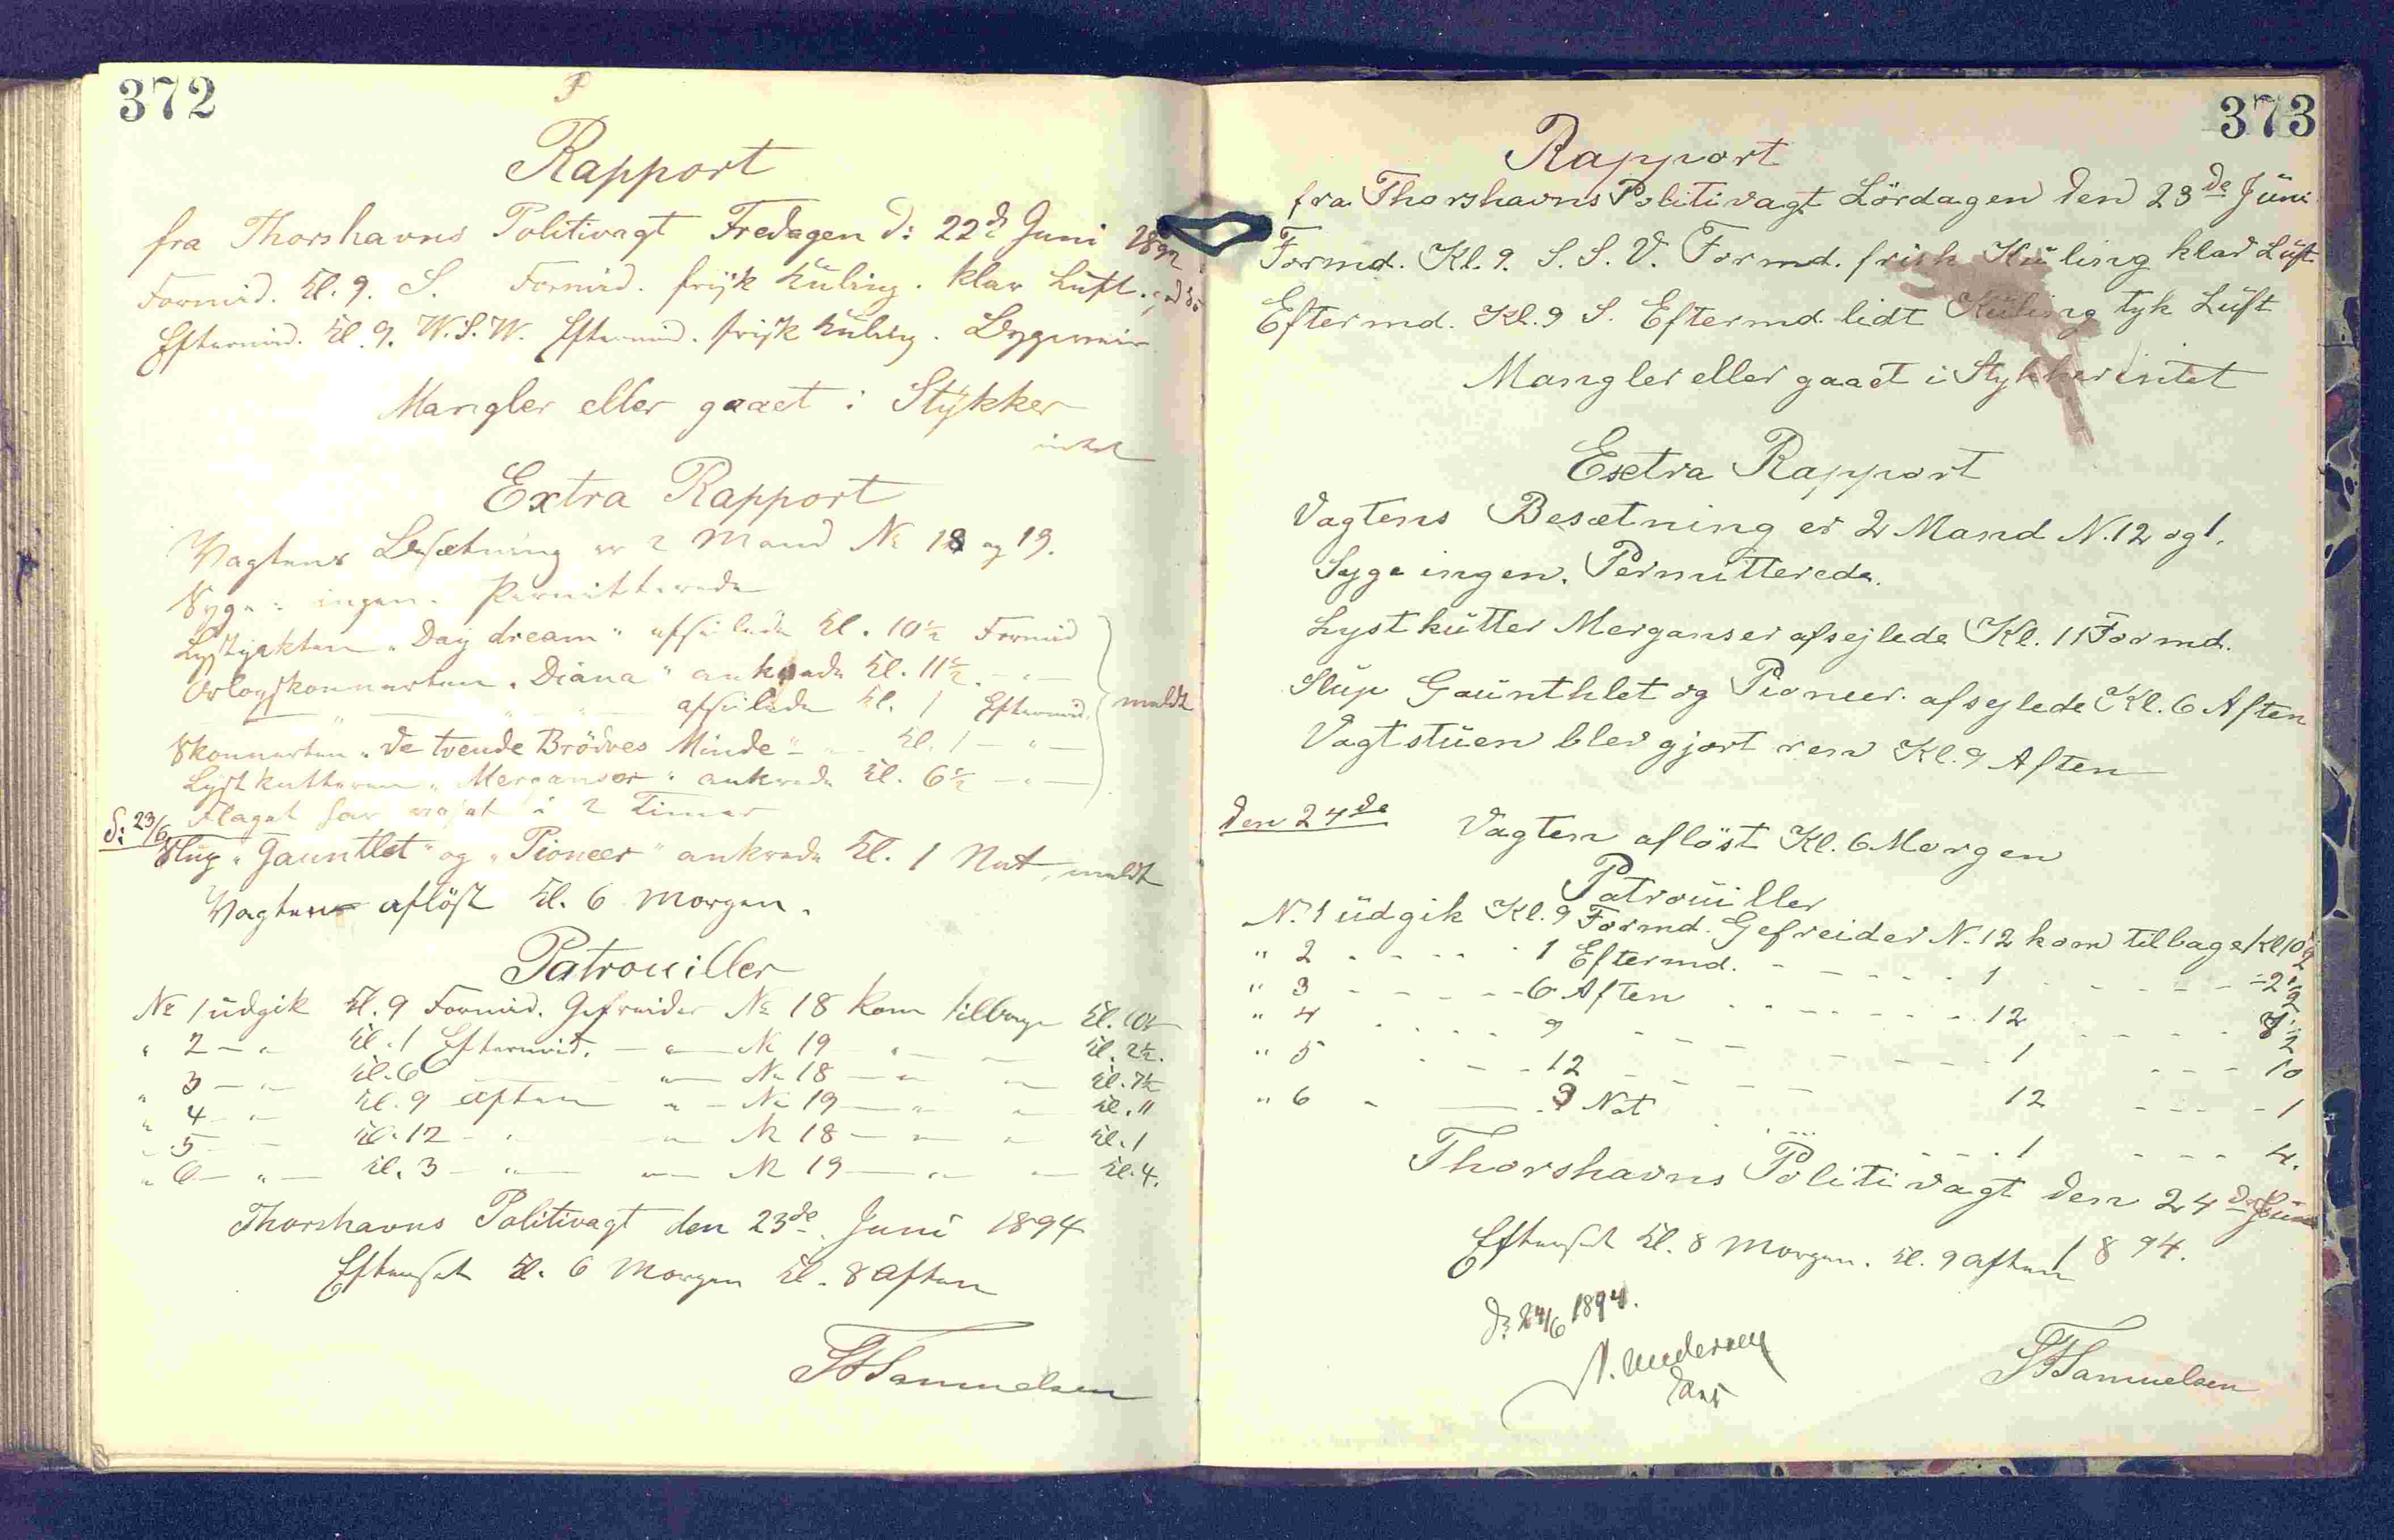 372
Rapport
fra Thorshavns Politivagt Fredagen d: 22d Juni
Formid. Kl. 9. S. Formid. frisk Kuling. klar Luft.
Eftermid. Kl. 9. W.S.W. Eftermid. frisk Kuling. Bygeveir
Mangler eller gaaet i Stÿkker
intet
Extra Rapport
Vagtens Besætning er 2 Mand No 18 og 19.
Syge: ingen. Permitterede
Lystyakten „Day dream" afseilede Kl. 10½ Formid
Orlogskonnerten „Diana" ankrede Kl. 11½ — " —
— " — afseilede Kl. 1 Eftermid.
meldt
Skonnerten „De tvende Brödres Minde" — " — Kl. 1 — " —
Lystkutteren „Merganser" ankrede Kl. 6½ — " —
Flaget har vajet i 2 Timer
d: 23/6
Slup „Gauntlet" og „Pioneer" ankrede Kl. 1 Nat, meldt
Vagten aflöst Kl. 6 Morgen.
Patrouiller
No 1 udgik Kl. 9 Formid. Gefreider No 18 kom tilbage Kl. 10½
" 2 — " Kl. 1 Eftermid. — " — No 19 " — — Kl. 2½.
" 3 — " — Kl. 6 — " — No 18 — " — " — Kl. 7½
" 4 — " Kl. 9 Aften " — No 19 — " — " Kl. 11
" 5 — Kl. 12 — " — " No 18 — " — " Kl. 1
" 6 — " — Kl. 3 — " — " — No 19 — " — " — Kl. 4.
Thorshavns Politivagt den 23de Juni 1894
Efterset Kl. 6 Morgen Kl. 8 Aften
Samuelsen
373
Rapport
fra Thorshavns Politivagt Lördagen den 23de Jüni
Formd. Kl. 9. S. S. V. Formd. frisk Küling klar Lüft
Eftermd. Kl. 9 S. Eftermd. lidt Küling tyk Lüft
Mangler eller gaaet i Stykker intet
Extra Rapport
Vagtens Besætning er 2 Mand N. 12 og 1.
Syge ingen. Permitterede.
Lystkütter Merganser afsejlede Kl. 11 Formd.
Slüp Gaünthlet og Pioneer afsejlede Kl. 6 Aften
Vagtstüen blev gjort ren Kl. 9 Aften
den 24de
Vagten aflöst Kl. 6 Morgen
Patrouiller
N. 1 üdgik Kl. 9 Formd. Gefreider N. 12 kom tilbage Kl 10½
" 2 - - - - - 1 Eftermd. - - - - - 1 - - - - - 2½
" 3 - - - - - 6 Aften - - - - - 12 - - - -
" 4 - - - - 9 - - - - - 1 - - - 10
" 5 - - - 12 - - - - 12 - - - - 1
" 6 - — 3 Nat - - - 1 - - - 4.
Thorshavns Politivagt den 24de Jüni
1894.
Efterset Kl. 8 Morgen. Kl. 9 Aften
d: 24/6 1894.
Andersen
Samuelsen